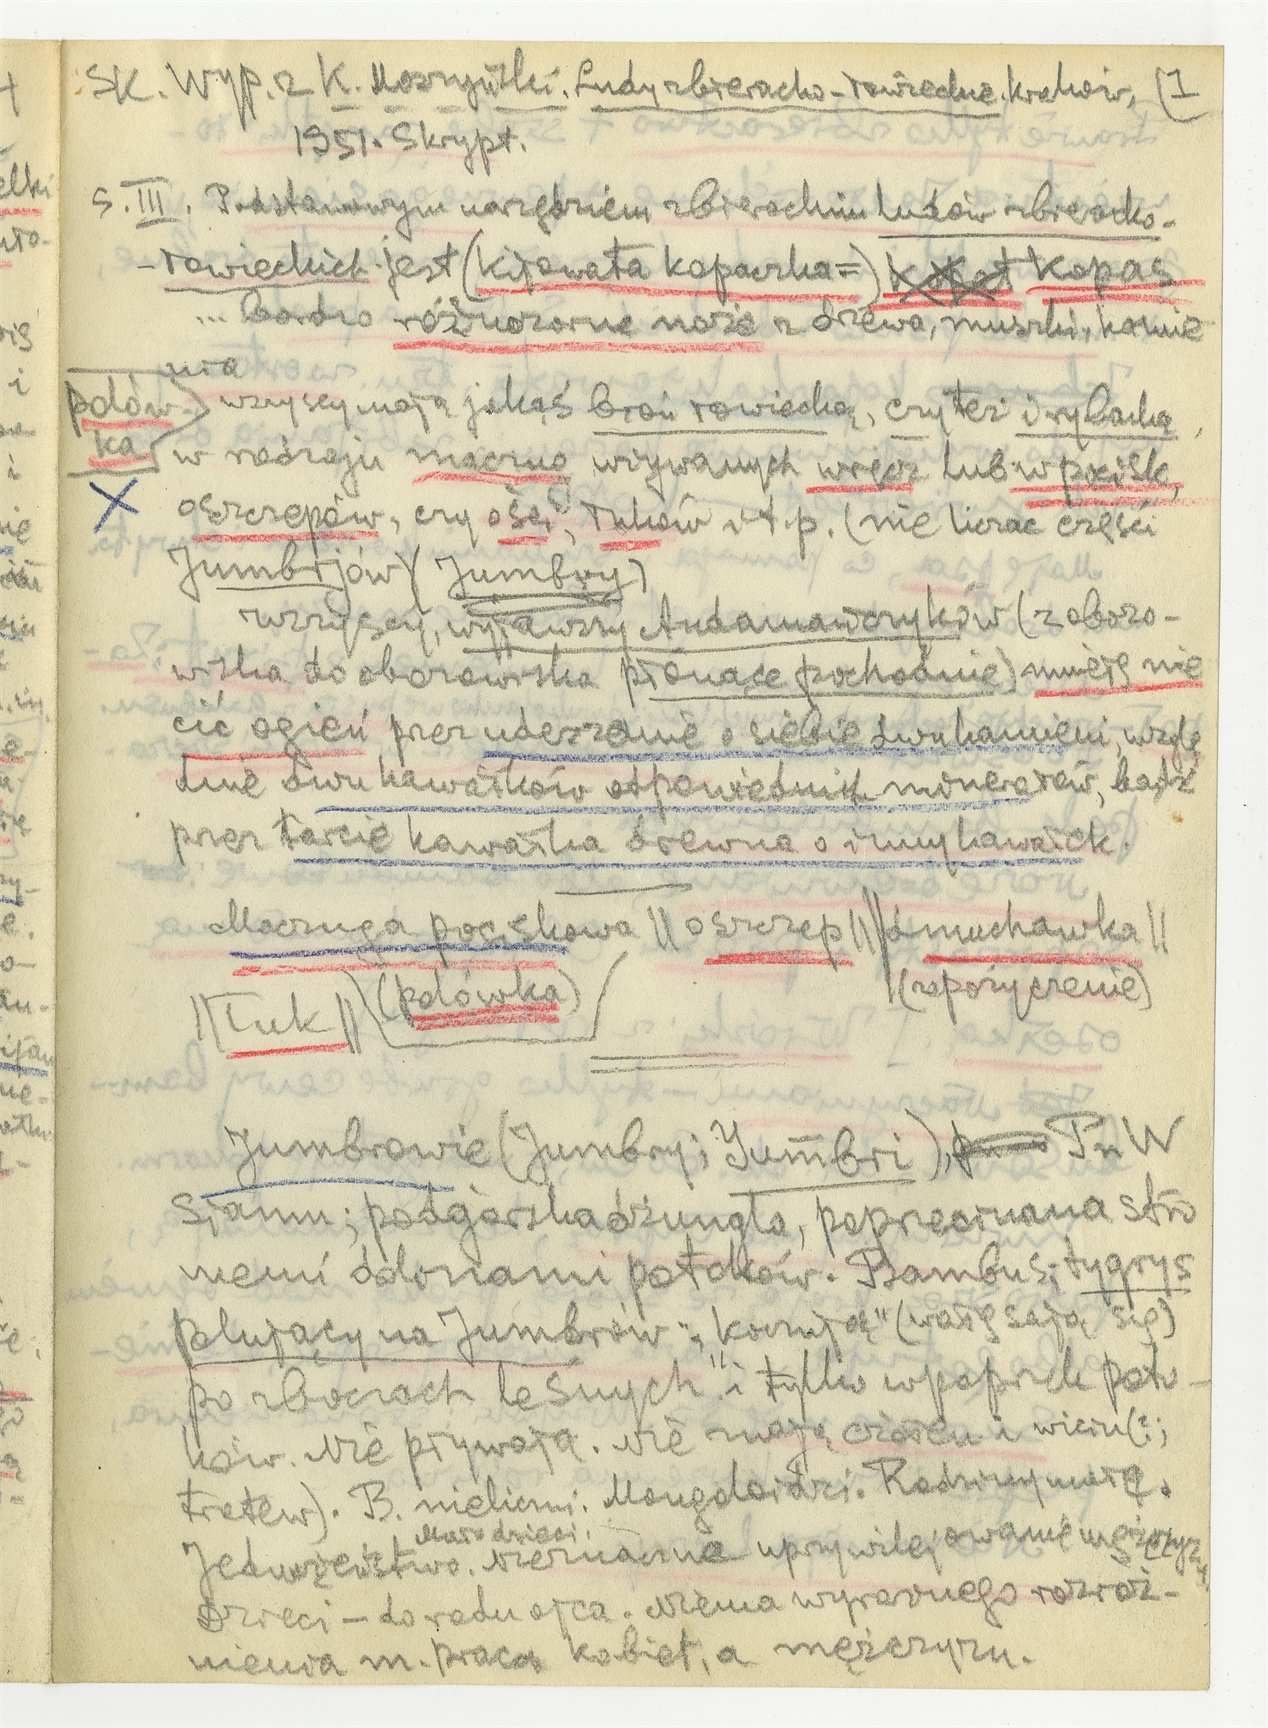 SK. Wyp. z K. Moszyński. Ludy zbieracko-łowieckie. Kraków, (1
1951. Skrypt.
S. III. Podstawowym narzędziem zbierackim ludów zbieracko-
-łowieckich jest (kijowata kopaczka=) kopas
... bardzo różnorodne noże z drzewa, muszki, kamie
nia
wszyscy mają jakąś broń łowiecką, czy też i rybacką,
połów-
ka
w rodzaju maczug używanych wręcz lub w pocisk,
X
oszczepów, czy ości, łuków i t.p. (nie licząc części
Jumbrjów) (Jumbry)
wszyscy, wyjąwszy Andamańczyków (z obozo-
wiska do obozowiska płonące pochodnie) umieją nie
cić ogień przez uderzenie o siebie dwu kamieni, wzglę
dnie dwu kawałków odpowiednich minerałów, bądź
przez tarcie kawałka drewna o inny kawałek.
Maczuga pociskowa || oszczep || dmuchawka ||
(zapożyczenie)
|| Łuk || (połówka)
Jumbrowie (Jumbry; Yumbri), Pn W
Sjamu; podgórska dżungla, poprzecinana stro
memi dolinami potoków. Bambus; tygrys
polujący na Jumbrów; "koczują" (wałęsają się)
po zboczach leśnych" i tylko wpoprzek poto-
ków. Nie pływają. Nie mają czółen i wicin (:;
tratew). B. nieliczni. Mongoloidzi. Rodziny małe.
Mało dzieci.
Jednożeństwo. Nieznaczne uprzywilejowanie mężczyzn.
Dzieci – do rodu ojca. Niema wyraźnego rozróż-
nienia m. pracą kobiet, a mężczyzn.